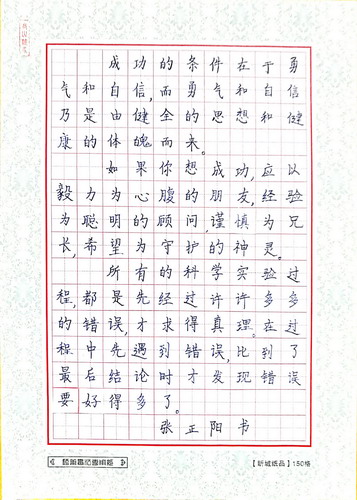 成功的条件在于勇
气和自信,而勇气和自信
乃是由健全的思想和健
康的体魄而来。
如果你想成功,应以
毅力为心腹的朋友,经验
为聪明的顾问,谨慎为兄
长,希望为守护的神灵。
所有的科学实验过
程,都是先经过许许多多
的错误,才求得真理。在过
程中先遇到错误,比到了
最后结论时才发现错误
要好得多了。
张正阳书
【新城纸品】150格